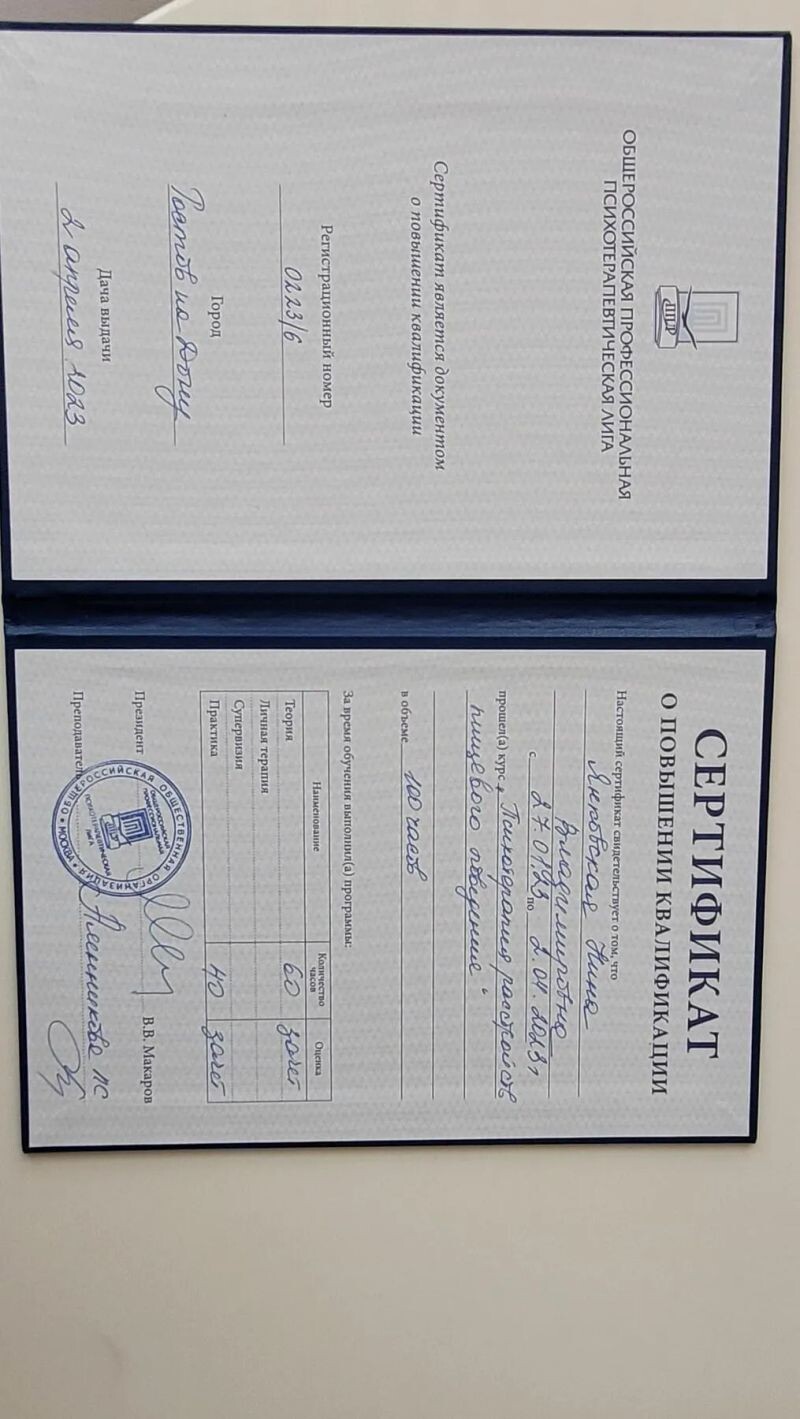 ППЛ
ОБЩЕРОССИЙСКАЯ ПРОФЕССИОНАЛЬНАЯ
ПСИХОТЕРАПЕВТИЧЕСКАЯ ЛИГА
Сертификат является документом
о повышении квалификации
Регистрационный номер
0223/6
Город
Ростов на Дону
Дача выдачи
2 апреля 2023
СЕРТИФИКАТ
О ПОВЫШЕНИИ КВАЛИФИКАЦИИ
Настоящий сертификат свидетельствует о том, что
Янковская Нина
Владимировна
с 27.01.23 по 2.04.2023,
прошел(а) курс „Психотерапия расстройств
пищевого поведения"
в объеме 100 часов
За время обучения выполнил(а) программы:
Наименование Количество часов Оценка
Теория 60 зачет
Личная терапия
Супервизия
Практика 40 зачет
Президент В.В. Макаров
Преподаватель ПС
ОБЩЕРОССИЙСКАЯ ОБЩЕСТВЕННАЯ ОРГАНИЗАЦИЯ МОСКВА
ОБЩЕРОССИЙСКАЯ
ПРОФЕССИОНАЛЬНАЯ
ПСИХОТЕРАПЕВТИЧЕСКАЯ
ЛИГА